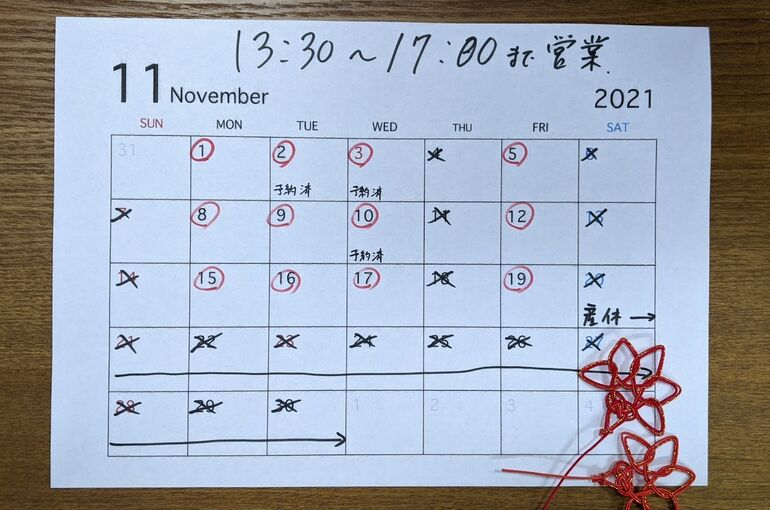 13:30～17:00まで営業.
11 November 2021
SUN MON TUE WED THU FRI SAT
31 1 2 3 4 5 6
予約済 予約済
7 8 9 10 11 12 13
予約済
14 15 16 17 18 19 20
産休→
21 22 23 24 25 26 27
28 29 30 1 2 3 4